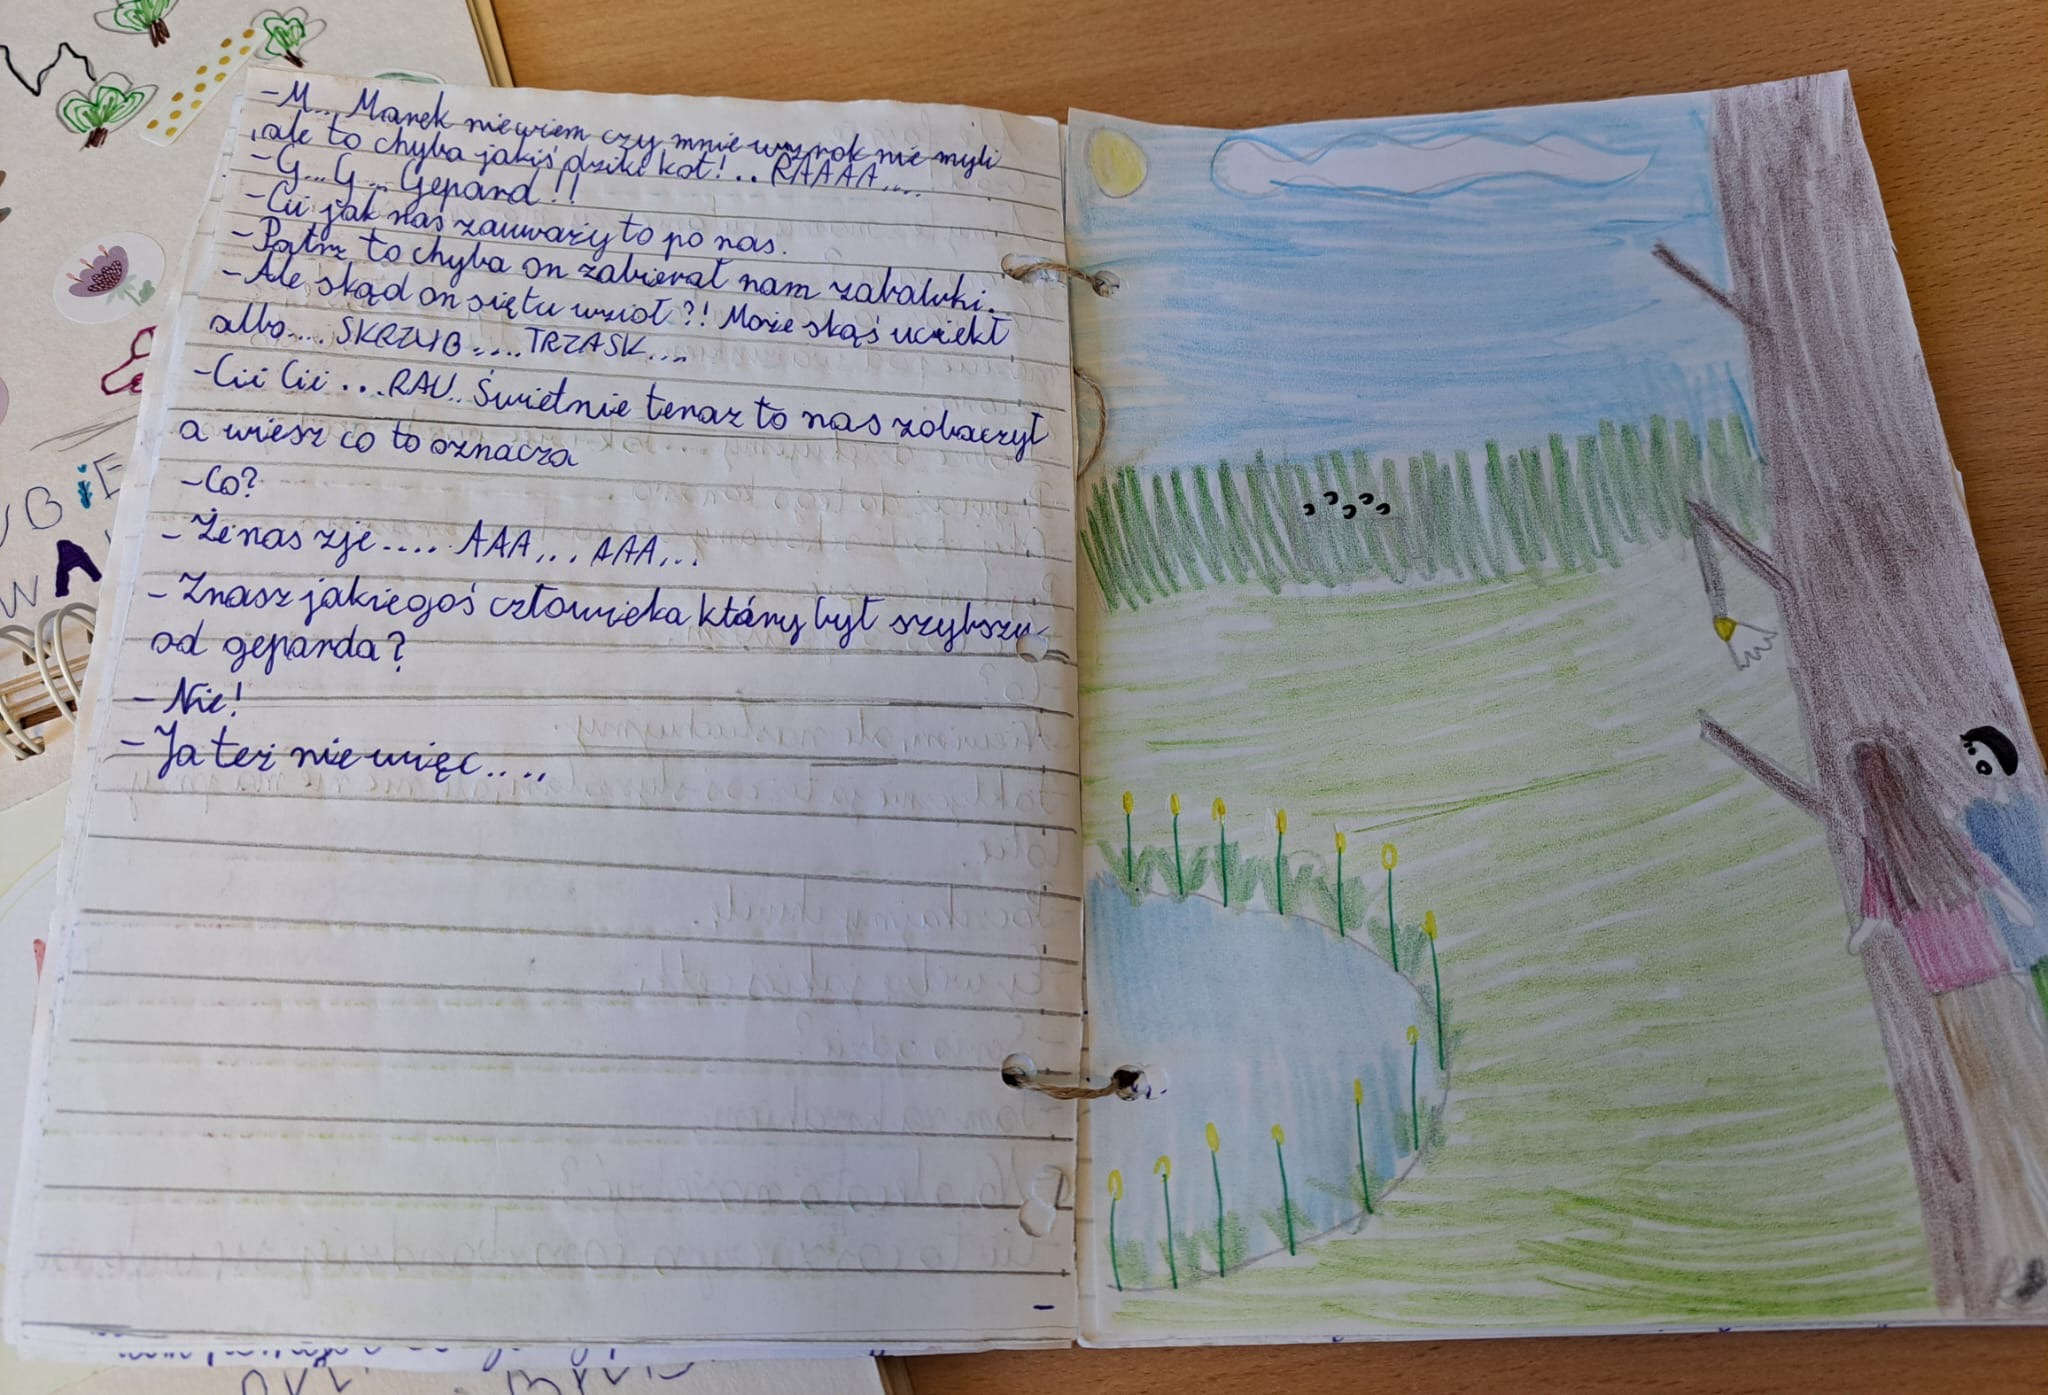 -M... Marek niewiem czy mnie wzrok nie myli
,ale to chyba jakiś dziki kot! .. RAAAA....
-G...G... Gepard!!
-Cii jak nas zauważy to po nas.
-Patrz to chyba on zabierał nam zabawki.
-Ale skąd on siętu wzioł?! Może skąś uciekł
albo.... SKRZYB .... TRZASK....
-Cii Cii ...RAU.. Świetnie teraz to nas zobaczył
a wiesz co to oznacza
-Co?
-Że nas zje.... AAA... AAA...
-Znasz jakiegoś człowieka który był szybszy
od geparda?
-Nie!
-Ja też nie więc....